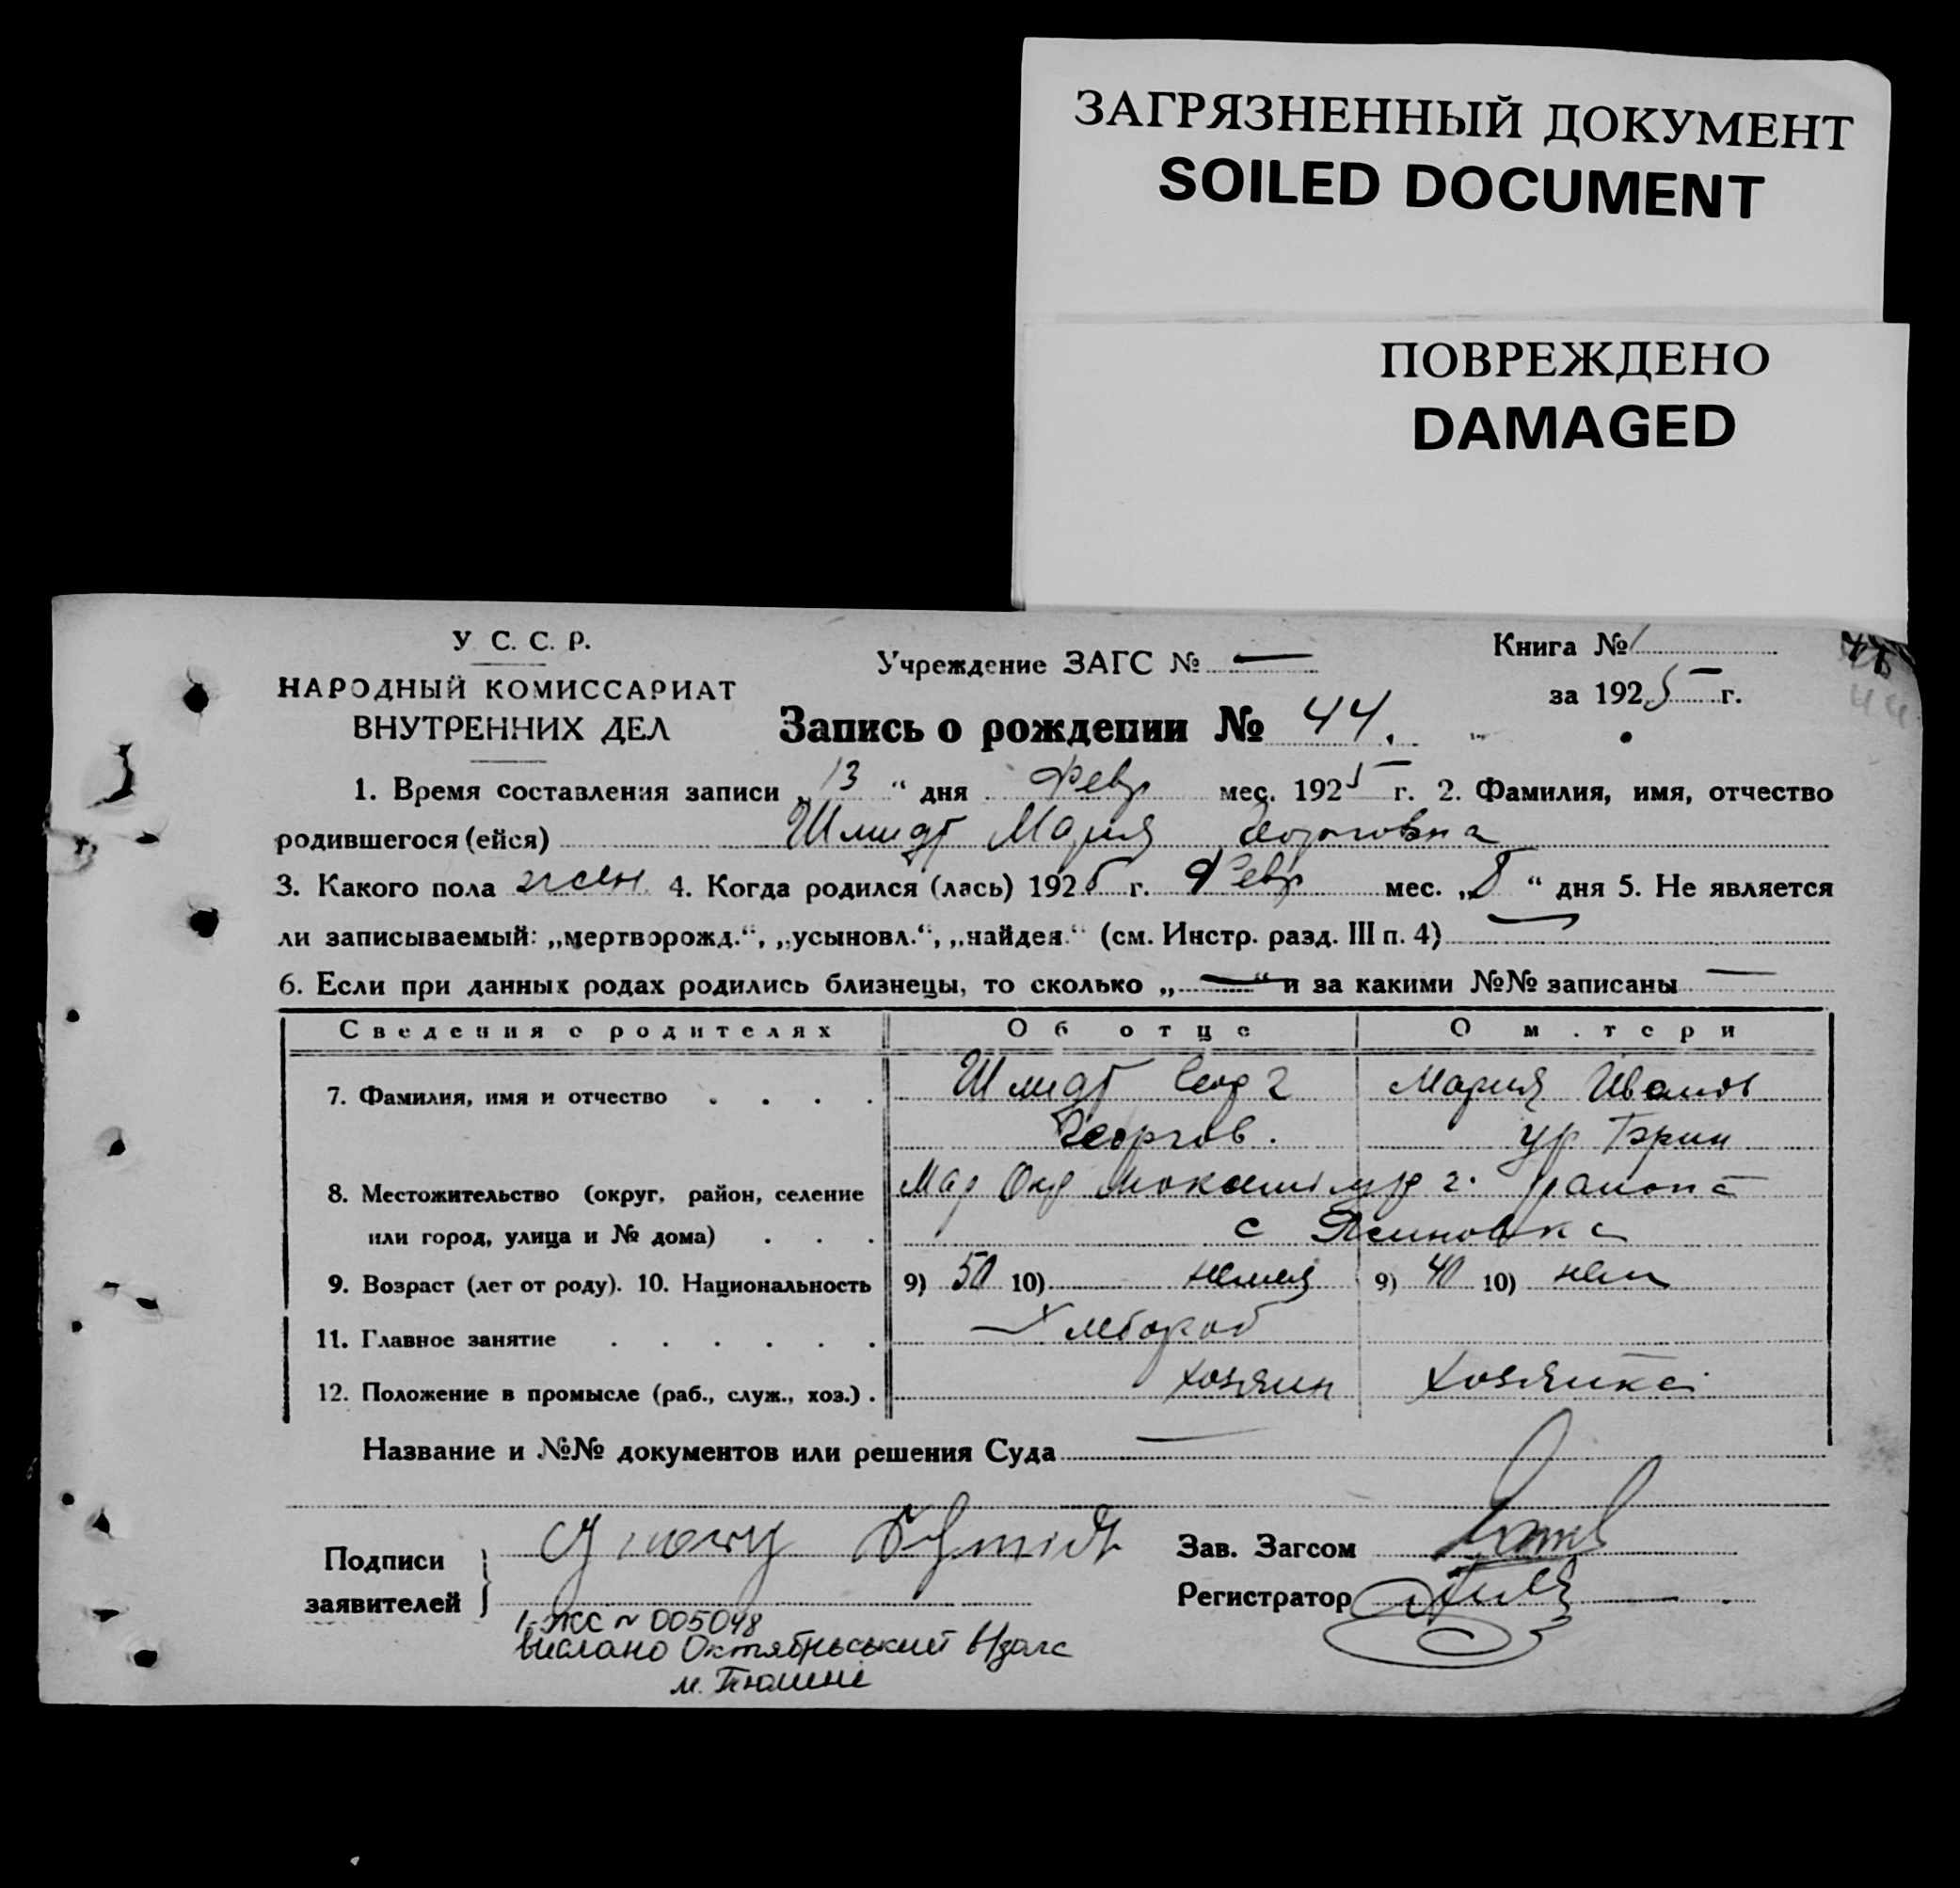 ЗАГРЯЗНЕННЫЙ ДОКУМЕНТ
SOILED DOCUMENT
ПОВРЕЖДЕНО
DAMAGED
У С. С. Р.
НАРОДНЫЙ КОМИССАРИАТ
ВНУТРЕННИХ ДЕЛ
Учреждение ЗАГС № —
Книга № 1
за 1925 г.
Запись о рождении № 44.
1. Время составления записи „13 “ дня Февр мес. 1925 г. 2. Фамилия, имя, отчество
родившегося (ейся) Шмидт Мария Георговна
3. Какого пола жен. 4. Когда родился (лась) 1925 г. Февр мес. „8 “ дня 5. Не является
ли записываемый: „мертворожд.“, „усыновл.“, „найден.“ (см. Инстр. разд. III п. 4) —
6. Если при данных родах родились близнецы, то сколько „—“ и за какими №№ записаны —
Сведения о родителях Об отце О м.тери
7. Фамилия, имя и отчество . . . . Шмидт Георг Мария Иванов
Георгов. ур Грин
8. Местожительство (округ, район, селение Мар Окр района
или город, улица и № дома) . . . с Ясиновка
9. Возраст (лет от роду). 10. Национальность 9) 50 10) немец 9) 40 10) нем
11. Главное занятие . . . . . . Хлебороб
12. Положение в промысле (раб., служ., хоз.) . хозяин хозяйка
Название и №№ документов или решения Суда —
Подписи
заявителей
Schmidt
Зав. Загсом
Регистратор
І-ЖС № 005048
вислано Октябрьський в/загс
м. Тюмені